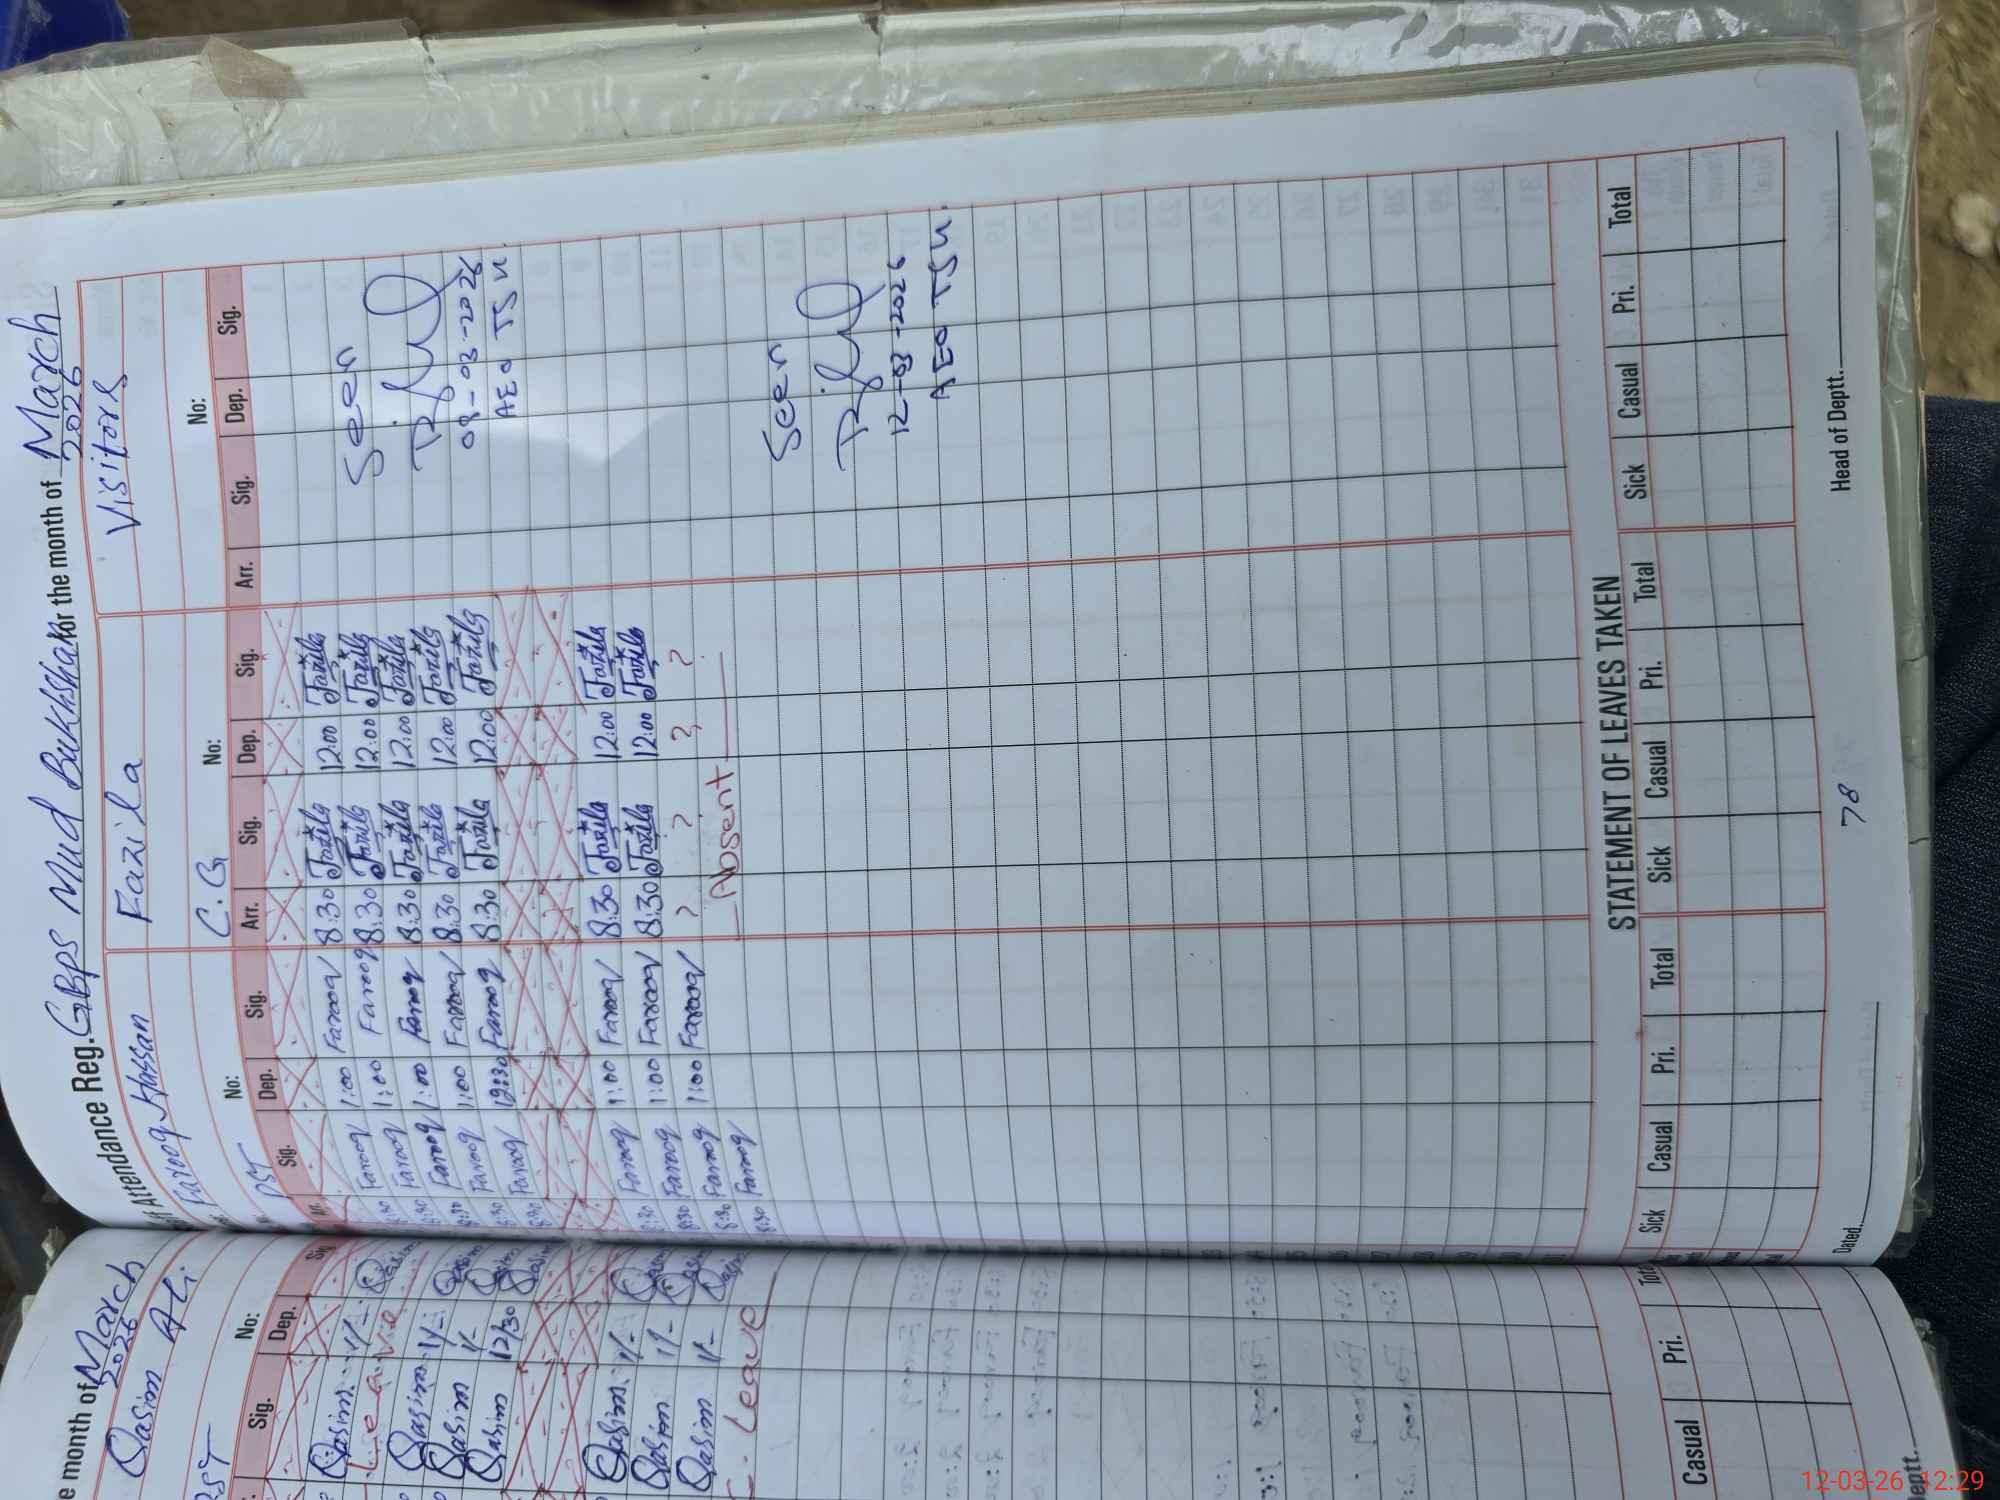 Attendance Reg. GBPS Mud Bukhshan for the month of March 2026
Farooq Hassan Fazila Visitors
PST C.G
No: No: No:
Arr. Sig. Dep. Sig. Arr. Sig. Dep. Sig. Arr. Sig. Dep. Sig.
8:30 Farooq 1:00 Farooq 8:30 Fazila 12:00 Fazila
8:30 Farooq 1:00 Farooq 8:30 Fazila 12:00 Fazila Seen
8:30 Farooq 1:00 Farooq 8:30 Fazila 12:00 Fazila
8:30 Farooq 1:00 Farooq 8:30 Fazila 12:00 Fazila 09-03-2026
8:30 Farooq 12:30 Farooq 8:30 Fazila 12:00 Fazila AEO TSK
8:30 Farooq 1:00 Farooq 8:30 Fazila 12:00 Fazila
8:30 Farooq 1:00 Farooq 8:30 Fazila 12:00 Fazila
8:30 Farooq 1:00 Farooq ? ? ? ?
8:30 Farooq Absent
Seen
12-03-2026
AEO TSK
STATEMENT OF LEAVES TAKEN
Sick Casual Pri. Total Sick Casual Pri. Total Sick Casual Pri. Total
Dated. Head of Deptt.
78
e month of March 2026
Qasim Ali
PST
No:
Sig. Dep. Sig
Qasim 1/- Qasim
Leave
Qasim 1/- Qasim
Qasim 1/- Qasim
Qasim 12/30 Qasim
Qasim 1/- Qasim
Qasim 1/- Qasim
Qasim 1/- Qasim
C. Leave
Casual Pri. Tota
Deptt.
12-03-26 12:29